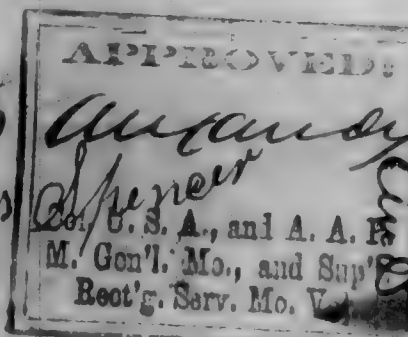 APPROVED:
Alexander
Spencer
Col. U. S. A., and A. A. P.
M. Gen'l. Mo., and Sup't
Rect'g. Serv. Mo. V